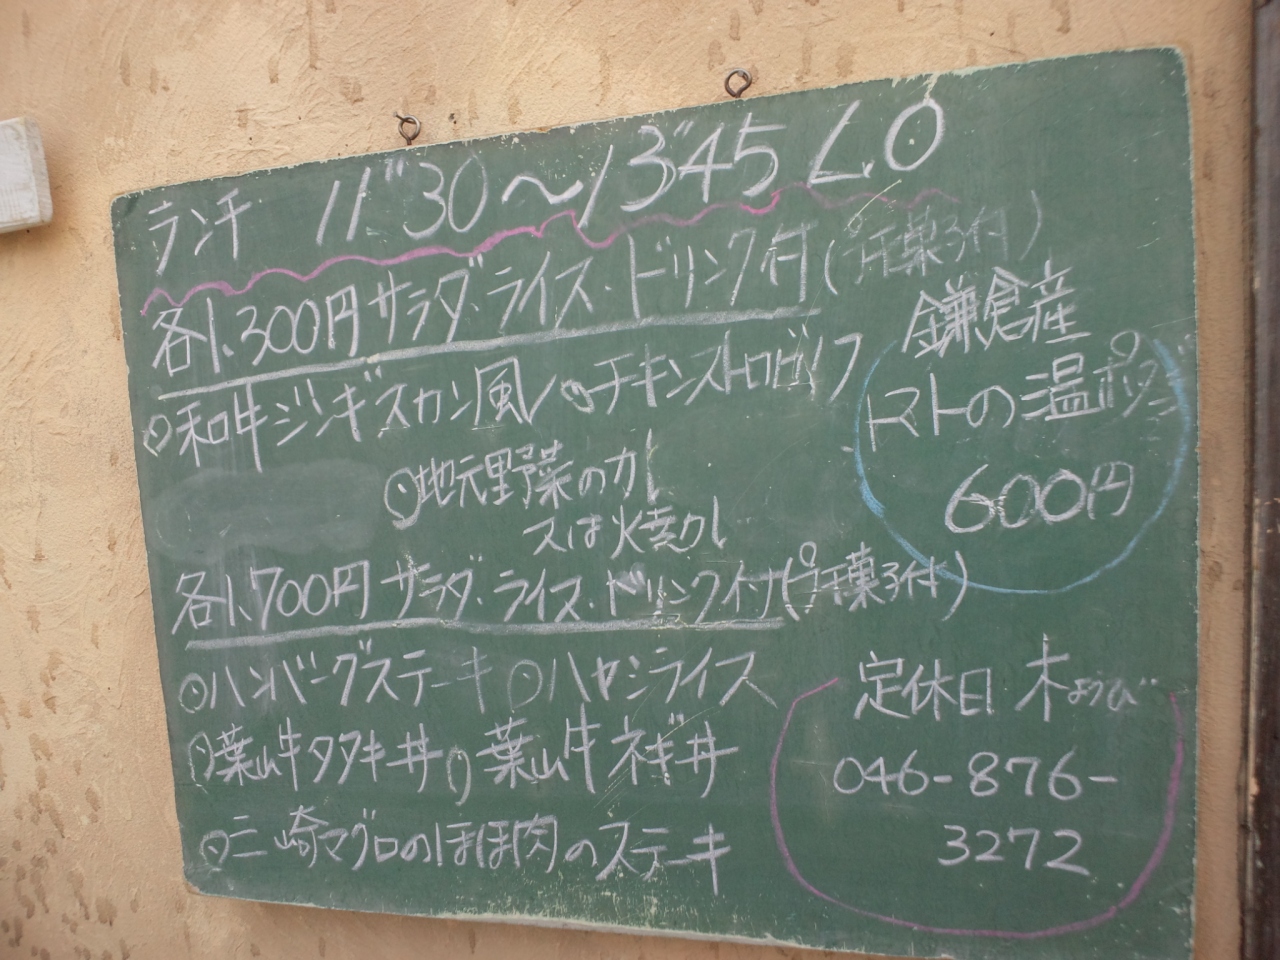 ランチ 11"30〜13"45 L.O
各1,300円 サラダ・ライス・ドリンク付(プチ菓子付)
◎和牛ジンギスカン風 ◎チキンストロガノフ
◎地元野菜のカレー
又は火焼カレー
鎌倉産
トマトの温ポタ
600円
各1,700円 サラダ・ライス・ドリンク付(プチ菓子付)
◎ハンバーグステーキ ◎ハヤシライス
◎葉山牛タタキ丼 ◎葉山牛ネギ丼
◎三崎マグロのほほ肉のステーキ
定休日 木ようび
046-876-
3272